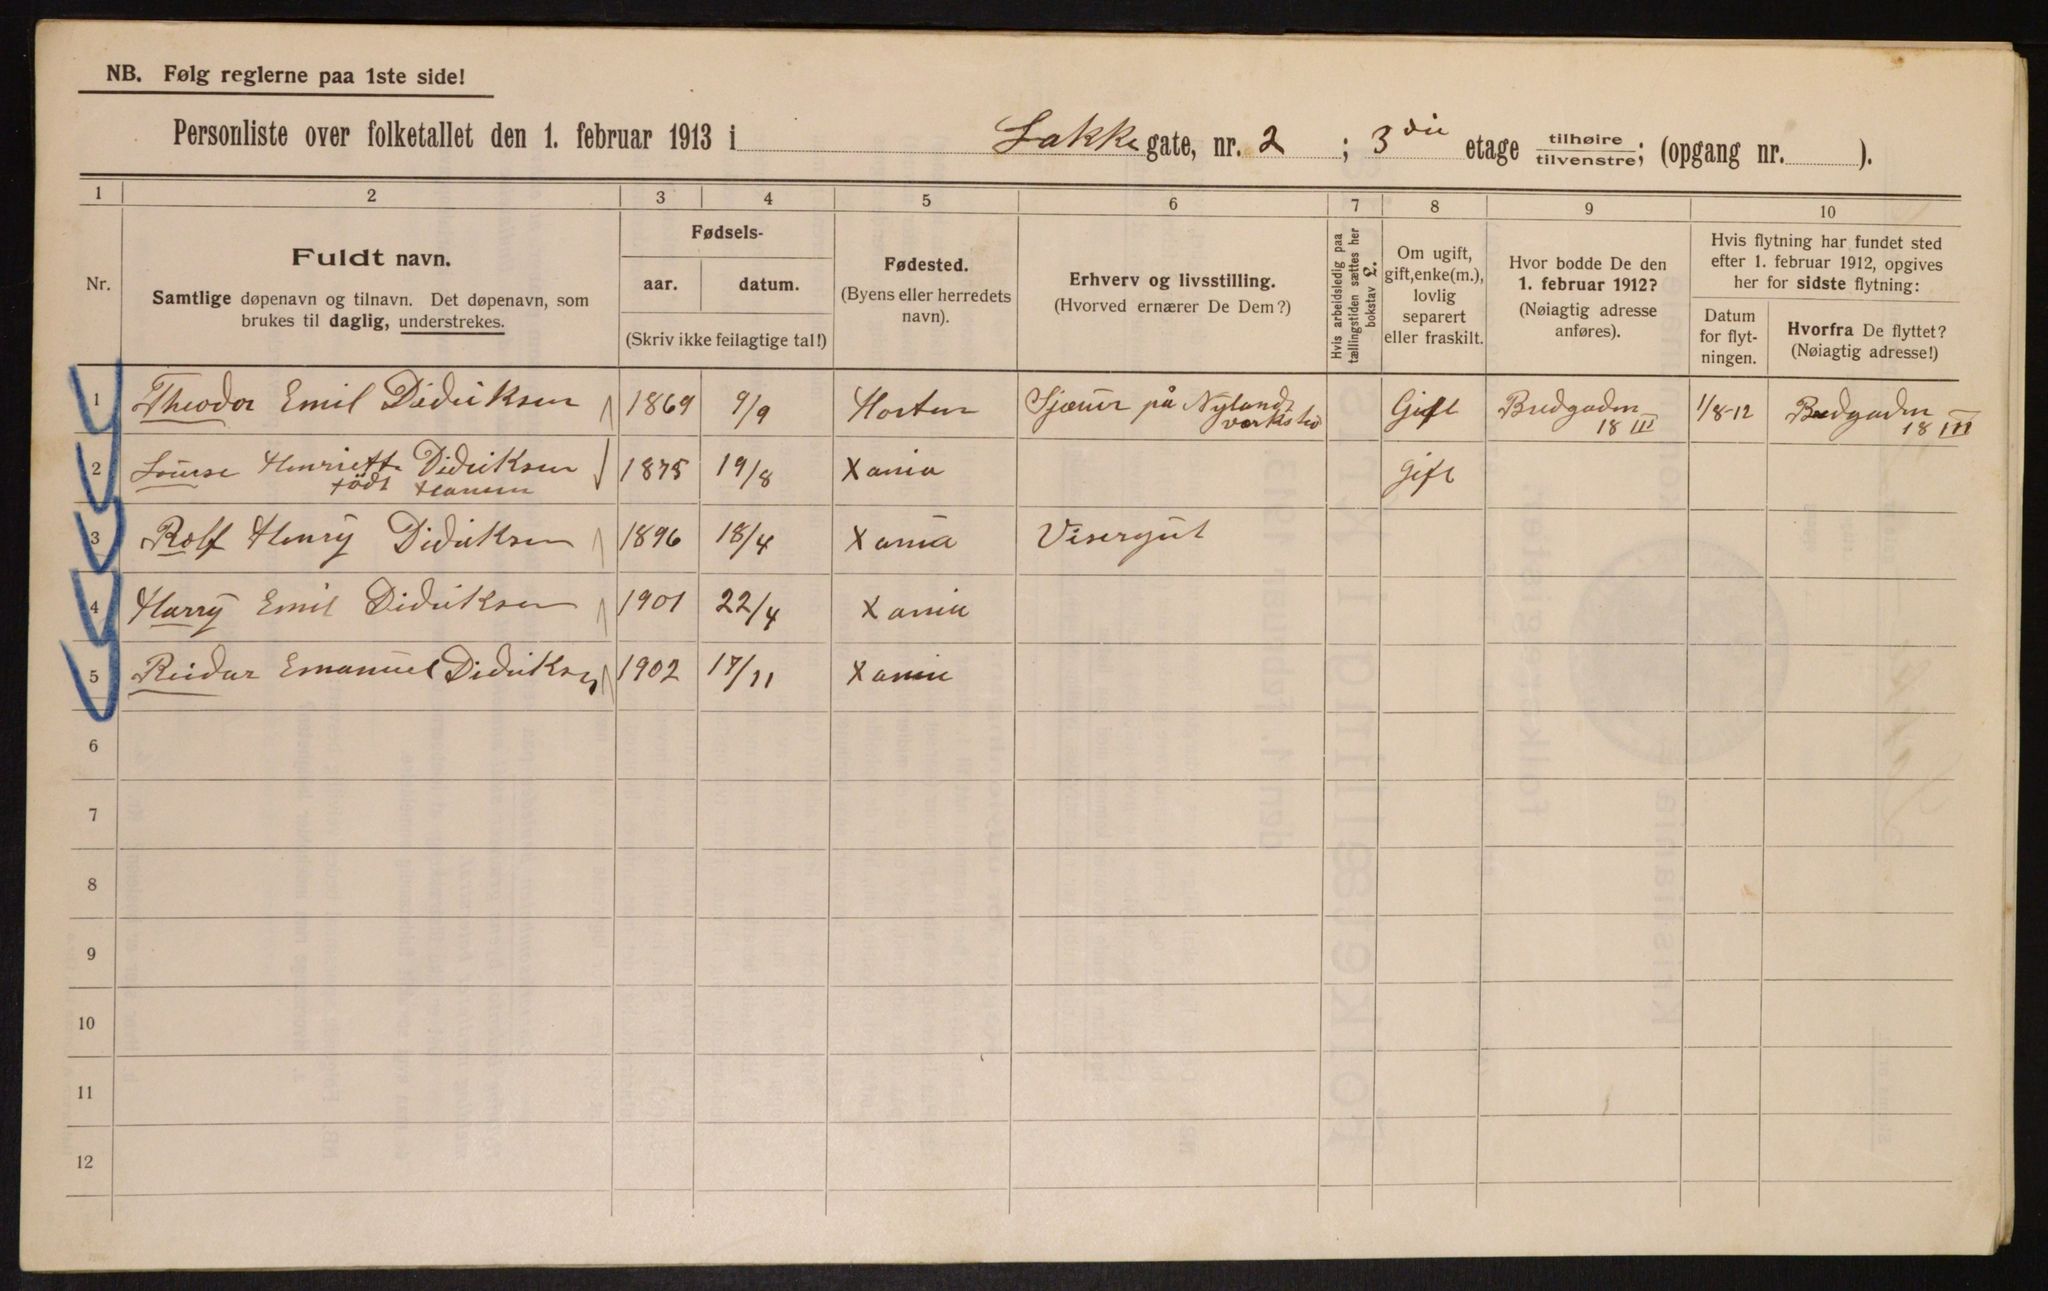 NB. Følg reglerne paa 1ste side!
Personliste over folketallet den 1. februar 1913 i Lakke gate, nr. 2 ; 3 die etage tilhøire/tilvenstre; (opgang nr. ).
1 2 3 4 5 6 7 8 9 10
Nr.
Fuldt navn.
Samtlige døpenavn og tilnavn. Det døpenavn, som
brukes til daglig, understrekes.
Fødsels-
aar. datum.
(Skriv ikke feilagtige tal!)
Fødested.
(Byens eller herredets
navn).
Erhverv og livsstilling.
(Hvorved ernærer De Dem?)
Hvis arbeidsledig paa
tællingstiden sættes her
bokstav L.
Om ugift,
gift, enke(m.),
lovlig
separert
eller fraskilt.
Hvor bodde De den
1. februar 1912?
(Nøiagtig adresse
anføres).
Hvis flytning har fundet sted
efter 1. februar 1912, opgives
her for sidste flytning:
Datum
for flyt-
ningen.
Hvorfra De flyttet?
(Nøiagtig adresse!)
1 Theodor Emil Didriksen 1869 9/9 Horten Sjauer på Nylands Gift Bredgaden 1/8-12 Bredgaden
værksted 18 III 18 III
2 Lourse Henriette Didriksen 1875 19/8 Xania Gift
född Hansen
3 Rolf Henry Didriksen 1896 18/4 Xania Visergut
4 Harry Emil Didriksen 1901 22/4 Xania
5 Reidar Emanuel Didriksen 1902 17/11 Xania
6
7
8
9
10
11
12